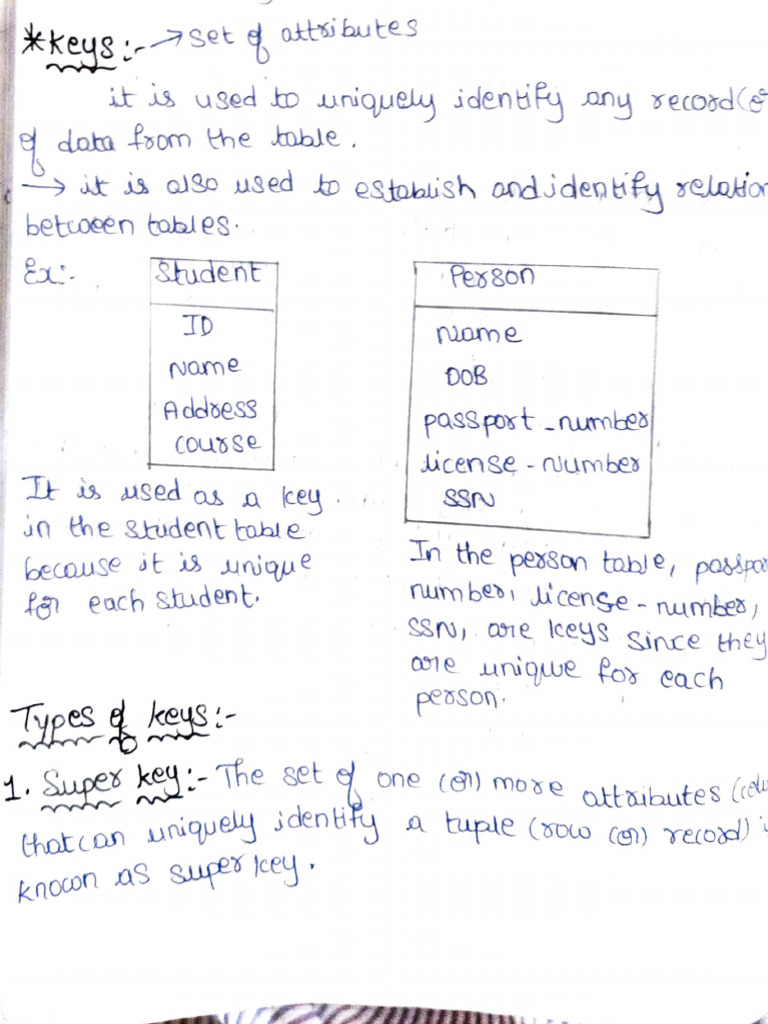 *Keys:- → set of attributes
it is used to uniquely identify any record(
of data from the table.
→ it is also used to establish and identify relation
between tables.
Ex:-
Student
ID
Name
Address
course
Person
Name
DOB
passport_number
license-Number
SSN
It is used as a key
in the student table
because it is unique
for each student.
In the person table,
number, license-number,
SSN, are keys since they
are unique for each
person.
Types of keys:-
1. Super key:- The set of one (or) more attributes (
that can uniquely identify a tuple (row (or) record)
known as super key.